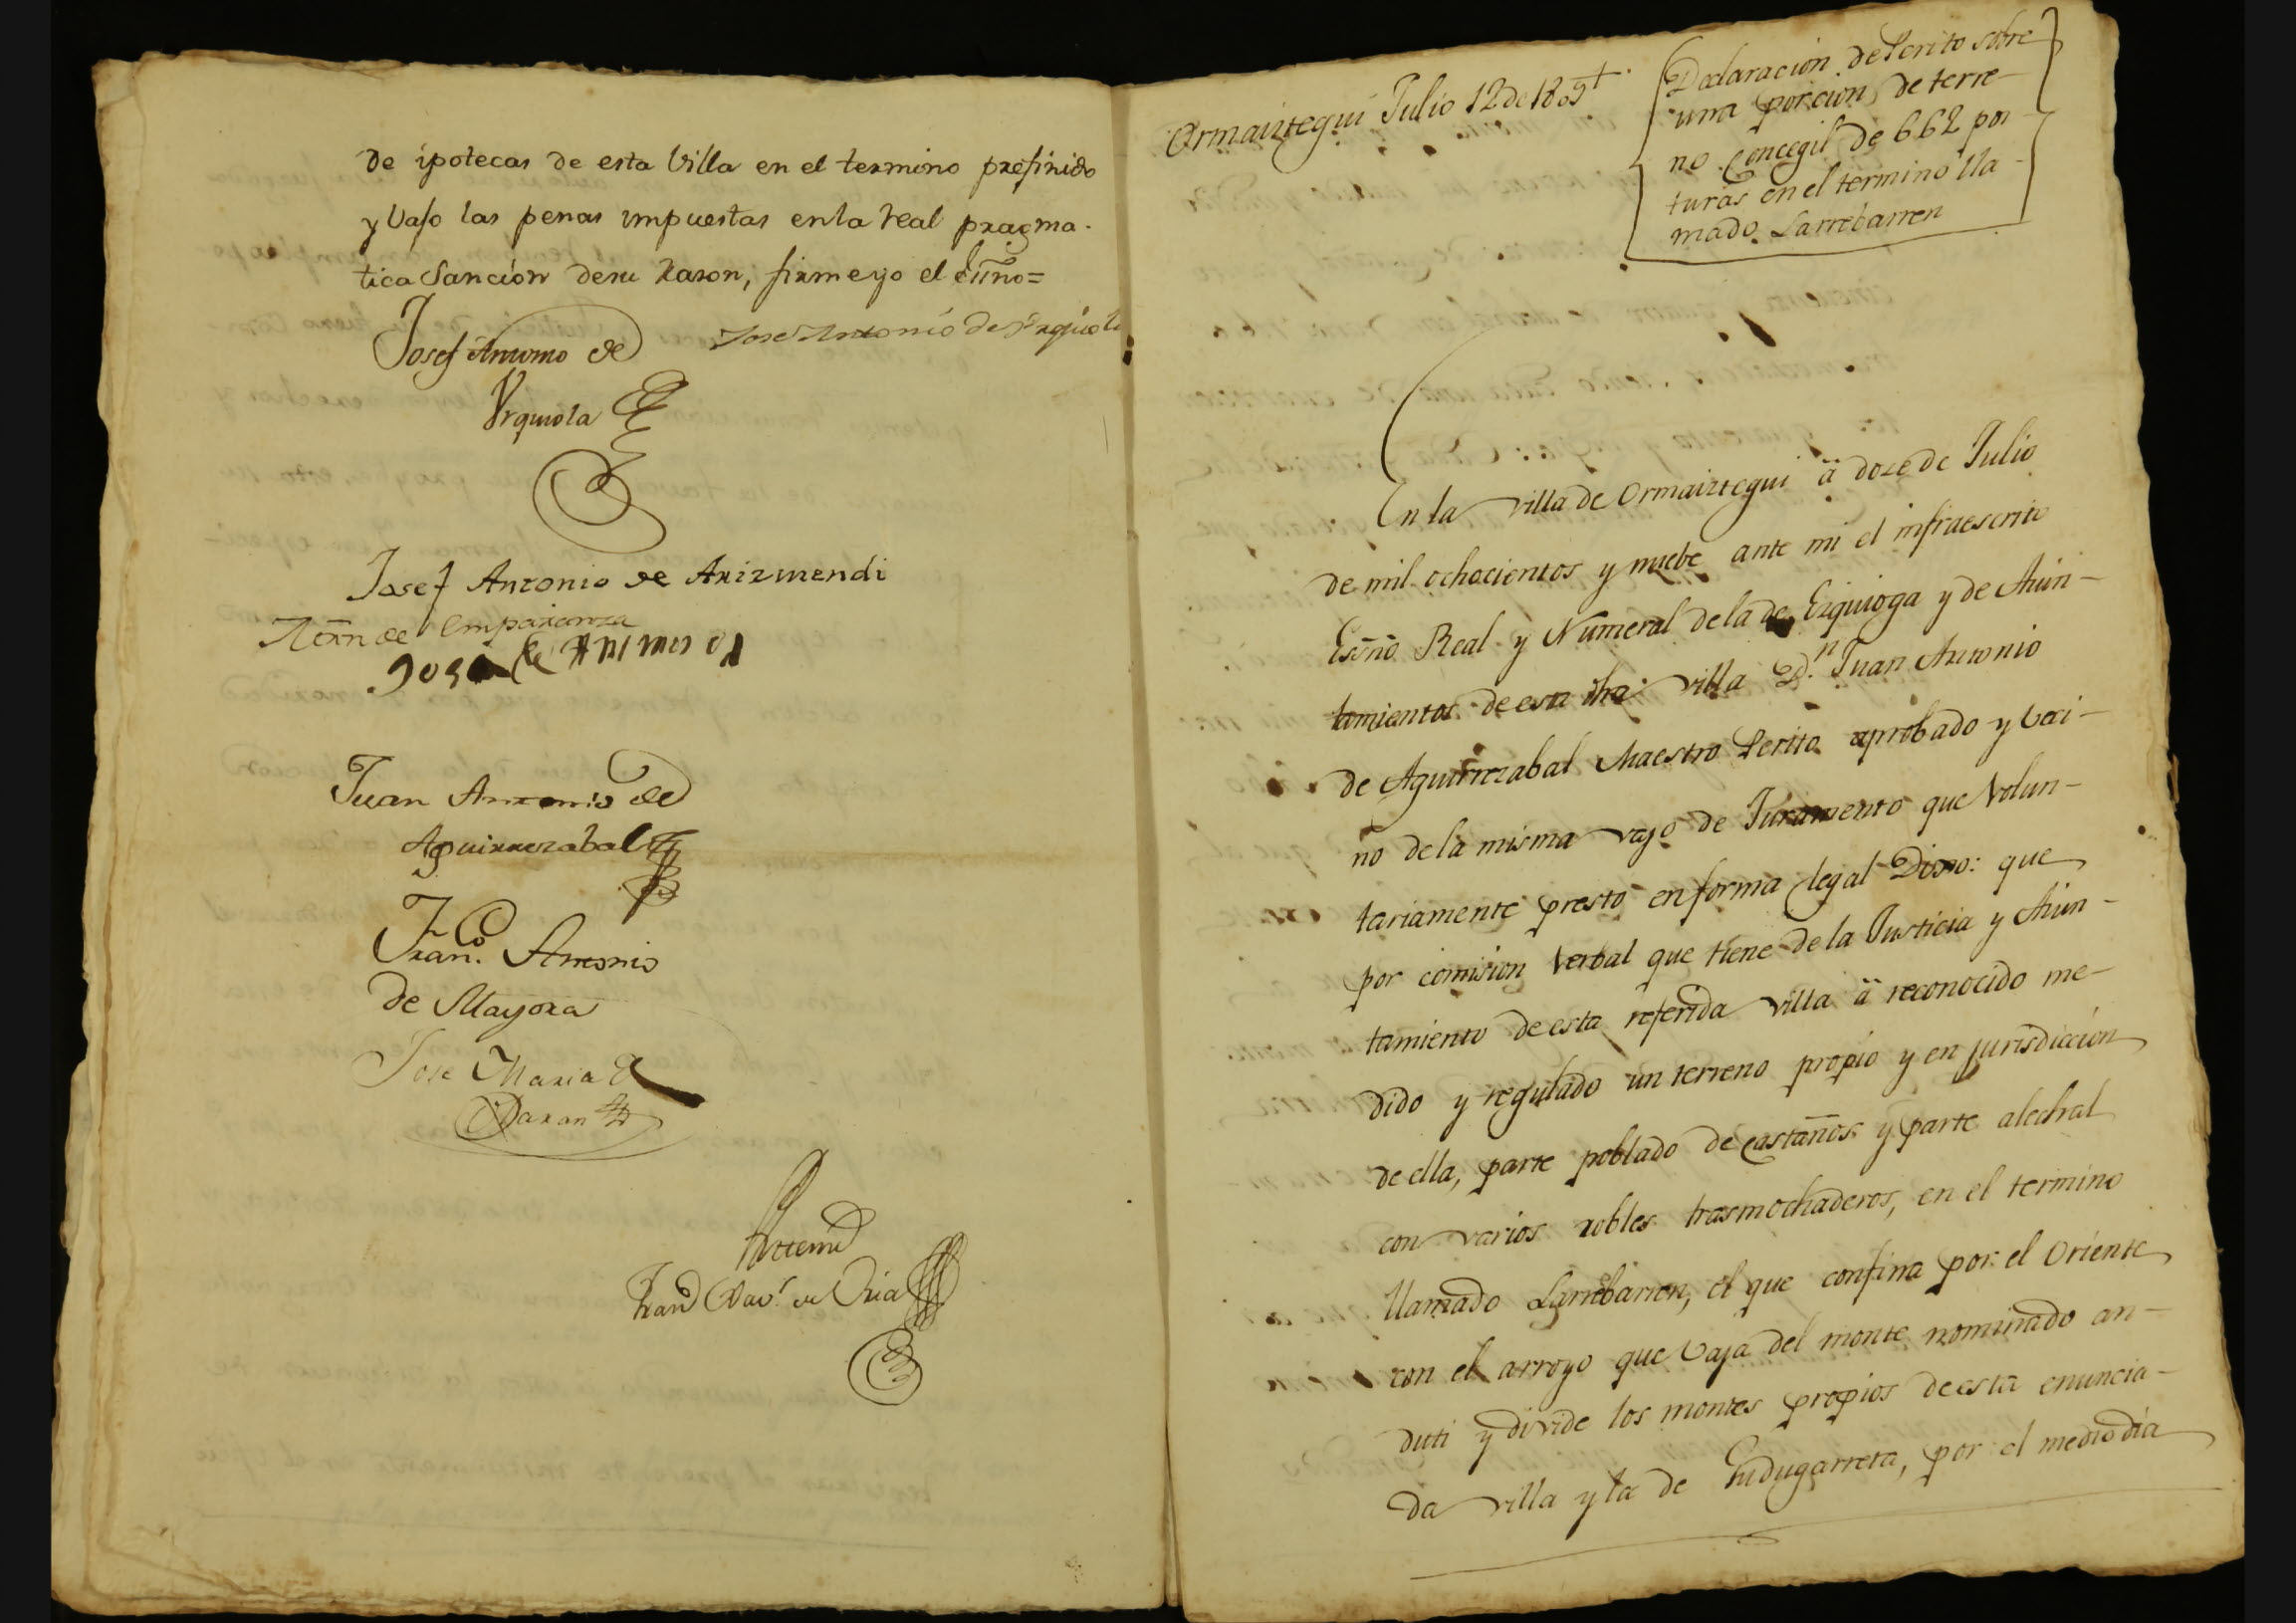 de ipotecas de esta Villa en el termino prefinido
y vajo las penas impuestas en la real pragma.
tica Sancion de su razon, firme yo el Essno=
Josef Antonio de
Urquiola
Jose Antonio de Urquiola
Josef Antonio de Arizmendi
Fern de Emparanza
Jose
Juan Antonio de
Aguirrezabal
Fran.co Antonio
de Mayora
Jose Maria de
Antemi
Fran.co Xav.r de Oria
Ormaiztegui Julio 12 de 1809
Declaracion de Perito sobre
una porcion de terre-
no Concegil de 662 pos
turas en el termino lla-
mado Larrebarren
En la villa de Ormaiztegui ä doze de Julio
de mil ochocientos y nuebe ante mi el infraescrito
Esño Real y Numeral de la de Ezquioga y de Aiun-
tamientos de esta dha villa D.n Juan Antonio
de Aguirrezabal Maestro Perito aprobado y veci-
no de la misma vajo de Juramento que volun-
tariamente presto en forma legal Dixo: que
por comision verbal que tiene de la Justicia y Aiun-
tamiento de esta referida villa ä reconocido me-
dido y regulado un terreno propio y en jurisdiccion
de ella, parte poblado de castaños y parte alechal
con varios robles trasmochaderos, en el termino
llamado Larrebarren, el que confina por el Oriente
con el arroyo que vaja del monte nominado an-
duti y divide los montes propios de esta enuncia-
da villa y la de Gudugarreta, por el medio dia